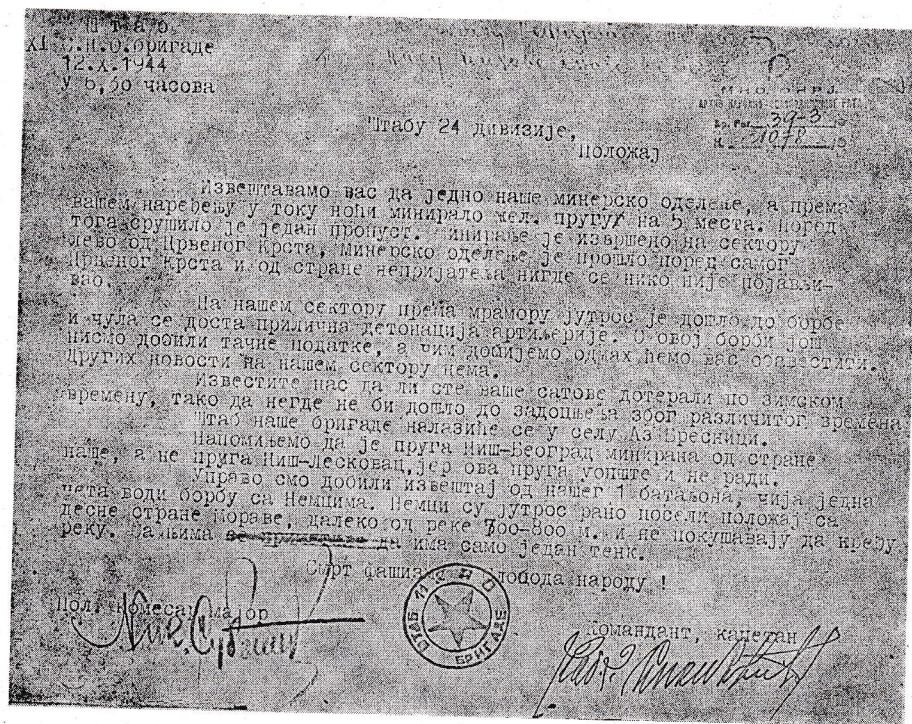 Штаб
XI С.Н.О.бригаде
12.X.1944
У 6,30 часова
39-3
10/8
Штабу 24 дивизије,
Положај
Извештавамо вас да једно наше минерско оделење, а према
вашем наређењу у току ноћи минирало жел. пругу на 5 места. Поред
тога срушило је један пропуст. Минирање је извршено на сектору
лево од Црвеног Крста, минерско оделење је прошло поред самог
Црвеног Крста и од стране непријатеља нигде се нико није појављи-
вао.
На нашем сектору према мрамору јутрос је дошло до борбе
и чула се доста прилична детонација артиљерије. О овој борби још
нисмо добили тачне податке, а чим добијемо одмах ћемо вас обавестити.
Других новости на нашем сектору нема.
Известите нас да ли сте ваше сатове дотерали по зимском
времену, тако да негде не би дошло до задоцњења због различитог времена
Штаб наше бригаде налазиће се у селу Аз Бресници.
Напомињемо да је пруга Ниш-Београд минирана од стране
наше, а не пруга Ниш-Лесковац, јер ова пруга уопште и не ради.
Управо смо добили извештај од нашег 1 батаљона, чија једна
чета води борбу са Немцима. Немци су јутрос рано посели положај са
десне стране Мораве, далеко од реке 700-800 м. и не покушавају да пређу
реку. Са њима има само један тенк.
Смрт фашизму Слобода народу !
Пол. Комесар мајор
ШТАБ 11 СНО БРИГАДЕ
Командант, капетан